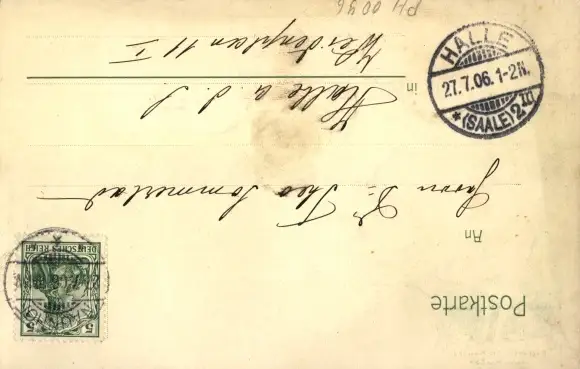 Postkarte
An
Herrn Dr. Theo Sommerlad
in Halle a. d. S.
11 I
HALLE
27.7.06. 1-2N.
*(SAALE)2 III
DEUTSCHES REICH
5 5
PH 0096